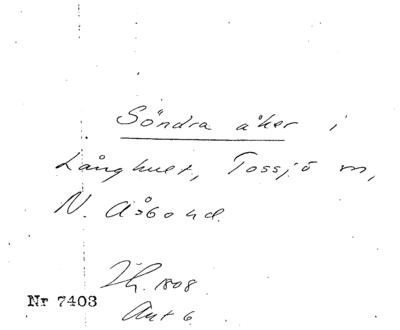 Söndra åker i
Långhult, Tossjö m,
N. Åsbo hd.
Lh. 1808
Nr 7403
Akt 6